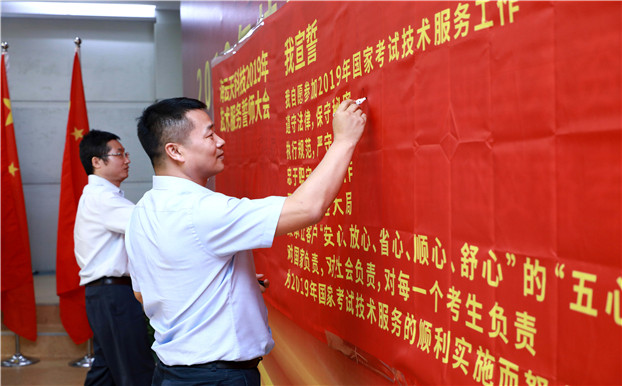 20
海云天科技2019年
技术服务誓师大会
我宣誓
我自愿参加2019年国家考试技术服务工作
遵守法律，保守
执行规范，严守
忠于职 作
大局
让客户“安心、放心、省心、顺心、舒心”的“五心
对国家负责，对社会负责，对每一个考生负责
为2019年国家考试技术服务的顺利实施而努